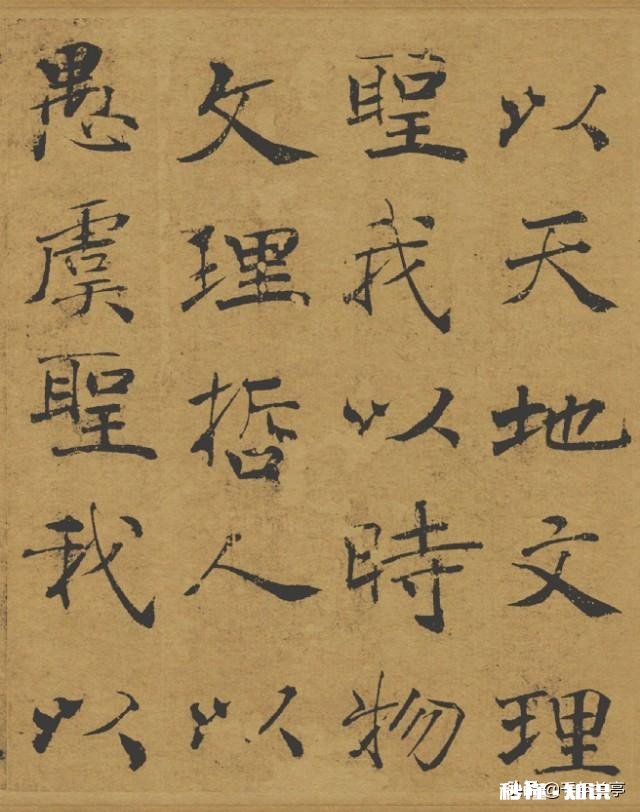 以天地文理
聖我以時物
文理哲人以
愚虞聖我以
秒懂·知识